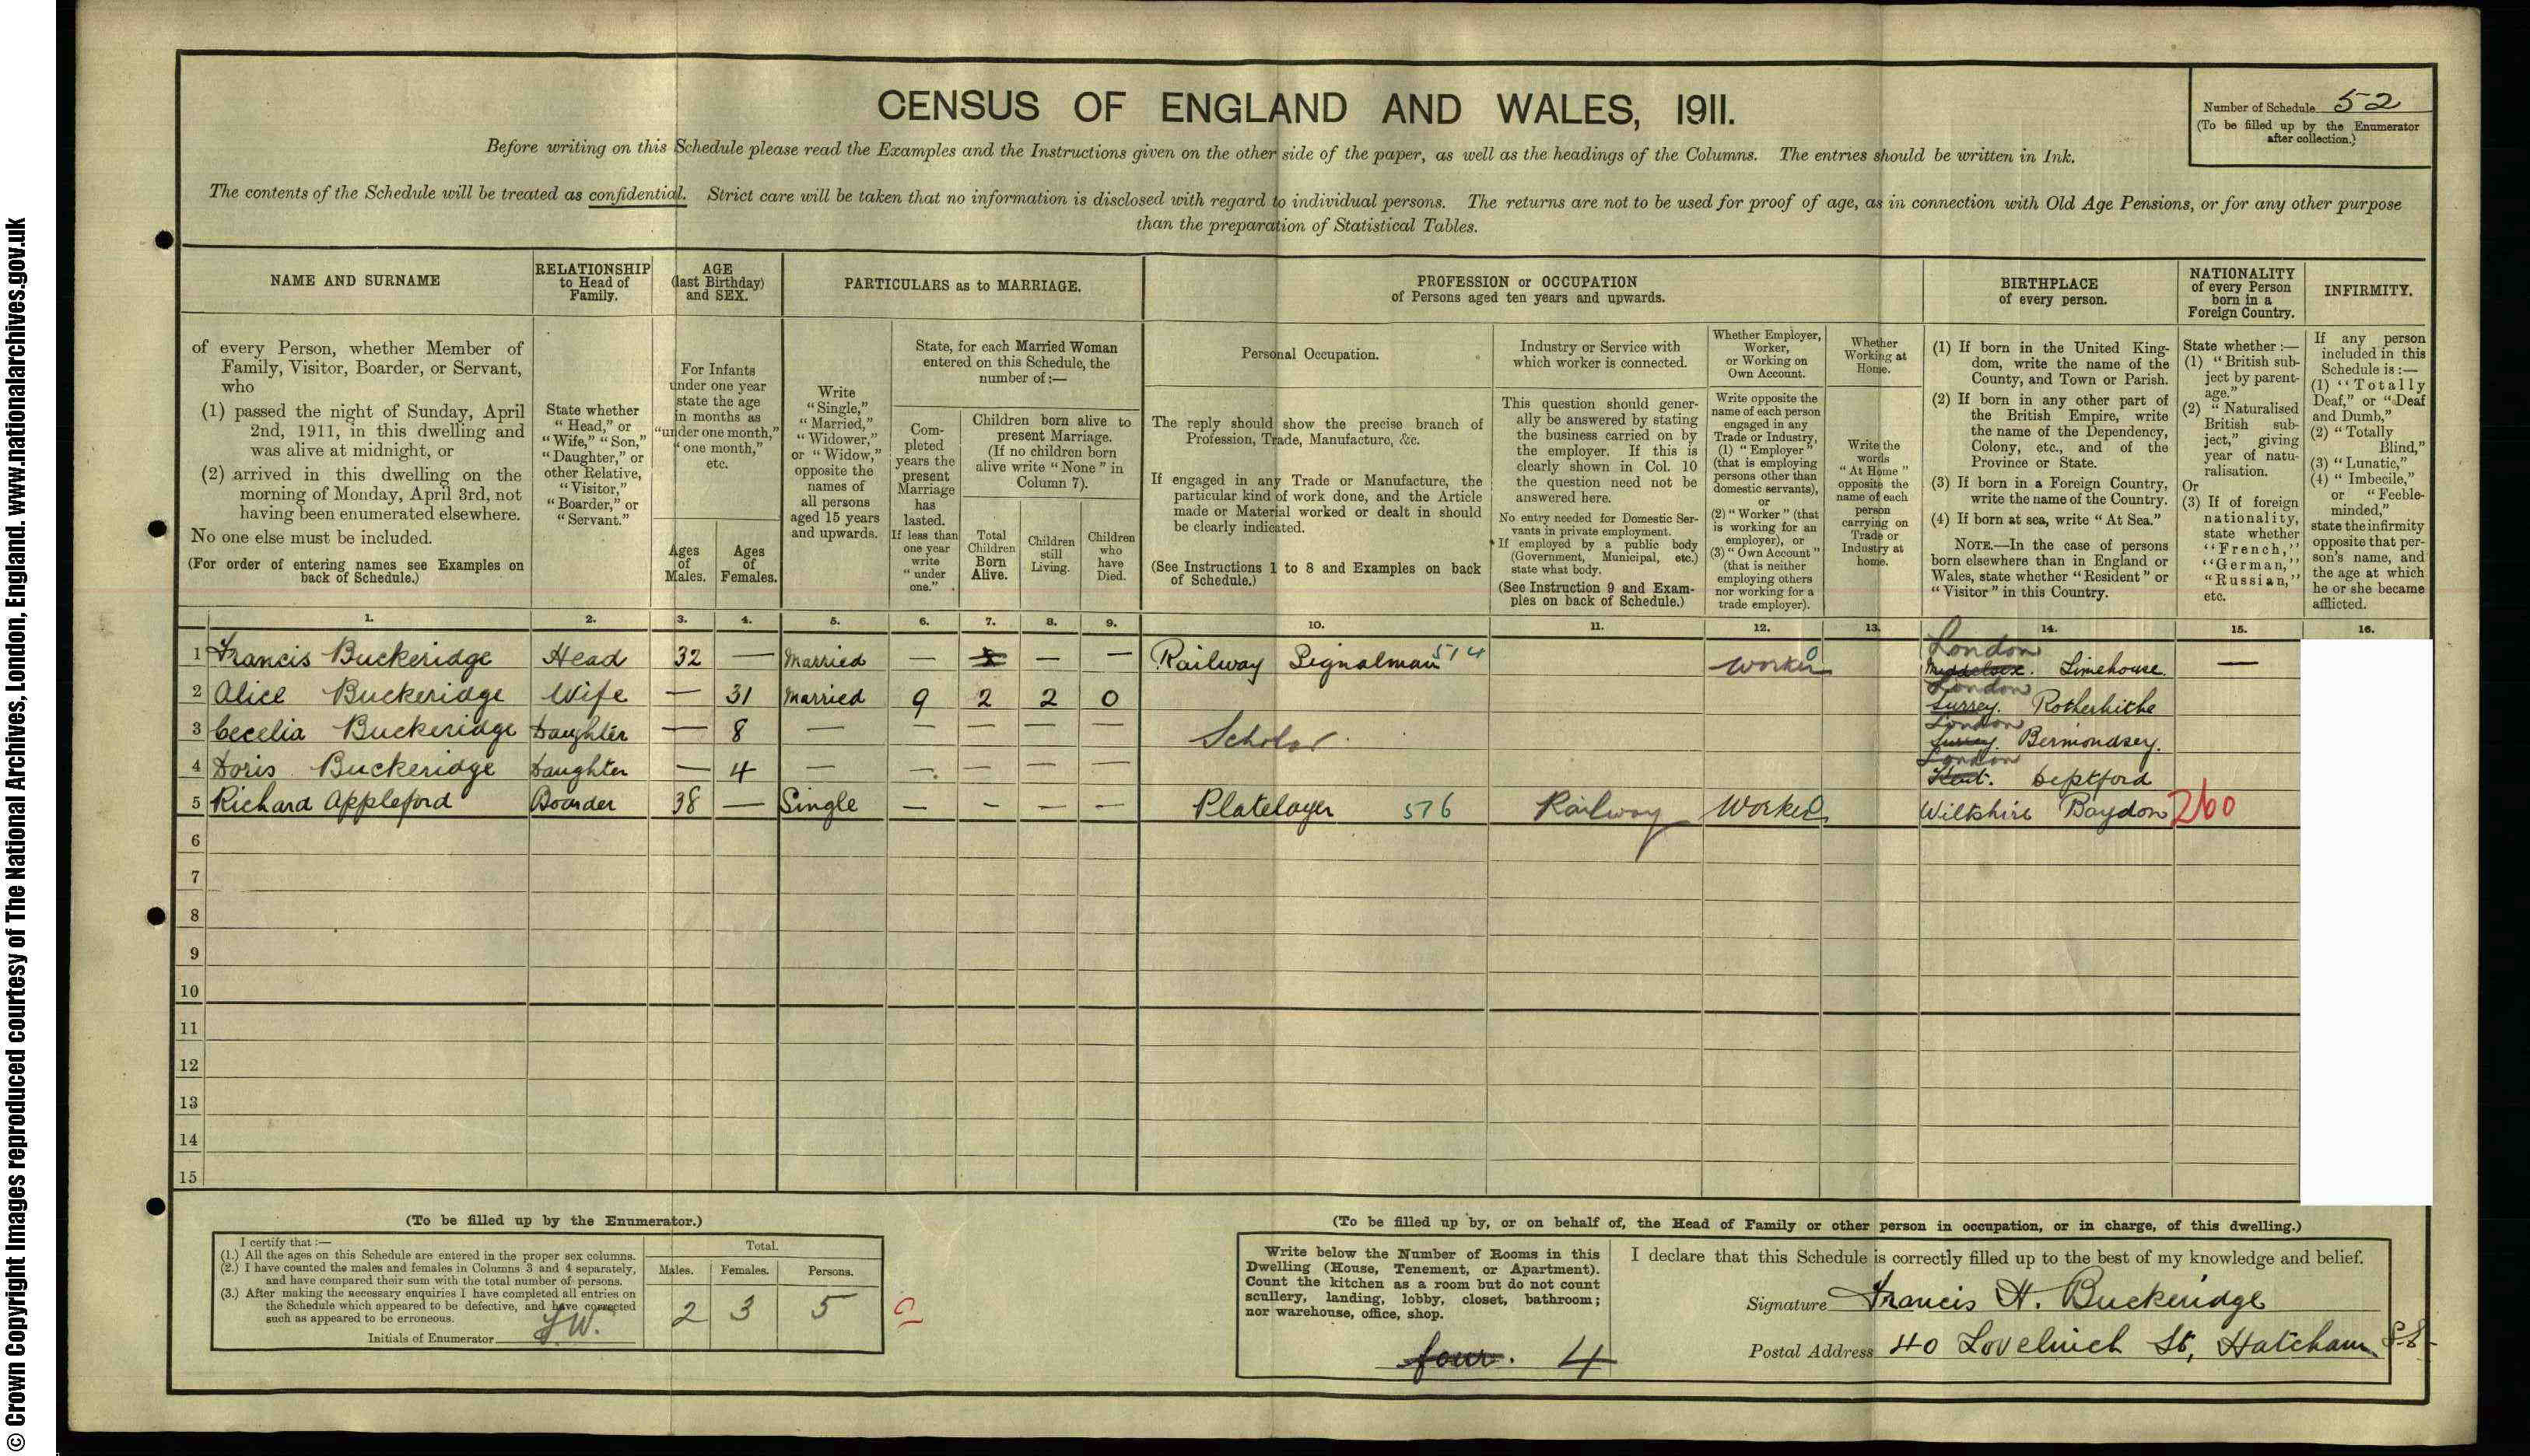 © Crown Copyright Images reproduced courtesy of The National Archives, London, England. www.nationalarchives.gov.uk
CENSUS OF ENGLAND AND WALES, 1911.
Number of Schedule 52
(To be filled up by the Enumerator
after collection.)
Before writing on this Schedule please read the Examples and the Instructions given on the other side of the paper, as well as the headings of the Columns. The entries should be written in Ink.
The contents of the Schedule will be treated as confidential. Strict care will be taken that no information is disclosed with regard to individual persons. The returns are not to be used for proof of age, as in connection with Old Age Pensions, or for any other purpose
than the preparation of Statistical Tables.
NAME AND SURNAME
of every Person, whether Member of
Family, Visitor, Boarder, or Servant,
who
(1) passed the night of Sunday, April
2nd, 1911, in this dwelling and
was alive at midnight, or
(2) arrived in this dwelling on the
morning of Monday, April 3rd, not
having been enumerated elsewhere.
No one else must be included.
(For order of entering names see Examples on
back of Schedule.)
RELATIONSHIP
to Head of
Family.
State whether
"Head," or
"Wife," "Son,"
"Daughter," or
other Relative,
"Visitor,"
"Boarder," or
"Servant."
AGE
(last Birthday)
and SEX.
For Infants
under one year
state the age
in months as
"under one month,"
"one month,"
etc.
Ages
of
Males.
Ages
of
Females.
PARTICULARS as to MARRIAGE.
Write
"Single,"
"Married,"
"Widower,"
or "Widow,"
opposite the
names of
all persons
aged 15 years
and upwards.
State, for each Married Woman
entered on this Schedule, the
number of:—
Com-
pleted
years the
present
Marriage
has
lasted.
If less than
one year
write
"under
one."
Children born alive to
present Marriage.
(If no children born
alive write "None" in
Column 7).
Total
Children
Born
Alive.
Children
still
Living.
Children
who
have
Died.
PROFESSION or OCCUPATION
of Persons aged ten years and upwards.
Personal Occupation.
The reply should show the precise branch of
Profession, Trade, Manufacture, &c.
If engaged in any Trade or Manufacture, the
particular kind of work done, and the Article
made or Material worked or dealt in should
be clearly indicated.
(See Instructions 1 to 8 and Examples on back
of Schedule.)
Industry or Service with
which worker is connected.
This question should gener-
ally be answered by stating
the business carried on by
the employer. If this is
clearly shown in Col. 10
the question need not be
answered here.
No entry needed for Domestic Ser-
vants in private employment.
If employed by a public body
(Government, Municipal, etc.)
state what body.
(See Instruction 9 and Exam-
ples on back of Schedule.)
Whether Employer,
Worker,
or Working on
Own Account.
Write opposite the
name of each person
engaged in any
Trade or Industry,
(1) "Employer"
(that is employing
persons other than
domestic servants),
or
(2) "Worker" (that
is working for an
employer), or
(3) "Own Account"
(that is neither
employing others
nor working for a
trade employer).
Whether
Working at
Home.
Write the
words
"At Home"
opposite the
name of each
person
carrying on
Trade or
Industry at
home.
BIRTHPLACE
of every person.
(1) If born in the United King-
dom, write the name of the
County, and Town or Parish.
(2) If born in any other part of
the British Empire, write
the name of the Dependency,
Colony, etc., and of the
Province or State.
(3) If born in a Foreign Country,
write the name of the Country.
(4) If born at sea, write "At Sea."
NOTE.—In the case of persons
born elsewhere than in England or
Wales, state whether "Resident" or
"Visitor" in this Country.
NATIONALITY
of every Person
born in a
Foreign Country.
State whether:—
(1) "British sub-
ject by parent-
age."
(2) "Naturalised
British sub-
ject," giving
year of natu-
ralisation.
Or
(3) If of foreign
nationality,
state whether
"French,"
"German,"
"Russian,"
etc.
INFIRMITY.
If any person
included in this
Schedule is:—
(1) "Totally
Deaf," or "Deaf
and Dumb,"
(2) "Totally
Blind,"
(3) "Lunatic,"
(4) "Imbecile,"
or "Feeble-
minded,"
state the infirmity
opposite that per-
son's name, and
the age at which
he or she became
afflicted.
1. 2. 3. 4. 5. 6. 7. 8. 9. 10. 11. 12. 13. 14. 15. 16.
London
1 Francis Buckeridge Head 32 — Married — — — Railway Signalman 514 Worker 0 Middlesex. Limehouse. —
London
2 Alice Buckeridge Wife — 31 Married 9 2 2 0 Surrey. Rotherhithe
London
3 Cecelia Buckeridge Daughter — 8 — — — — — Scholar. Surrey. Bermondsey.
London
4 Doris Buckeridge Daughter — 4 — — — — — Kent. Deptford
5 Richard Appleford Boarder 38 — Single — — — — Platelayer 576 Railway Worker Wiltshire Baydon 260
6
7
8
9
10
11
12
13
14
15
(To be filled up by the Enumerator.)
I certify that:—
(1.) All the ages on this Schedule are entered in the proper sex columns.
(2.) I have counted the males and females in Columns 3 and 4 separately,
and have compared their sum with the total number of persons.
(3.) After making the necessary enquiries I have completed all entries on
the Schedule which appeared to be defective, and have corrected
such as appeared to be erroneous.
Initials of Enumerator
Total.
Males. Females. Persons.
2 3 5
(To be filled up by, or on behalf of, the Head of Family or other person in occupation, or in charge, of this dwelling.)
Write below the Number of Rooms in this
Dwelling (House, Tenement, or Apartment).
Count the kitchen as a room but do not count
scullery, landing, lobby, closet, bathroom;
nor warehouse, office, shop.
four. 4
I declare that this Schedule is correctly filled up to the best of my knowledge and belief.
Signature Francis H. Buckeridge
Postal Address 40 Lovelinch St, Hatcham S.E.